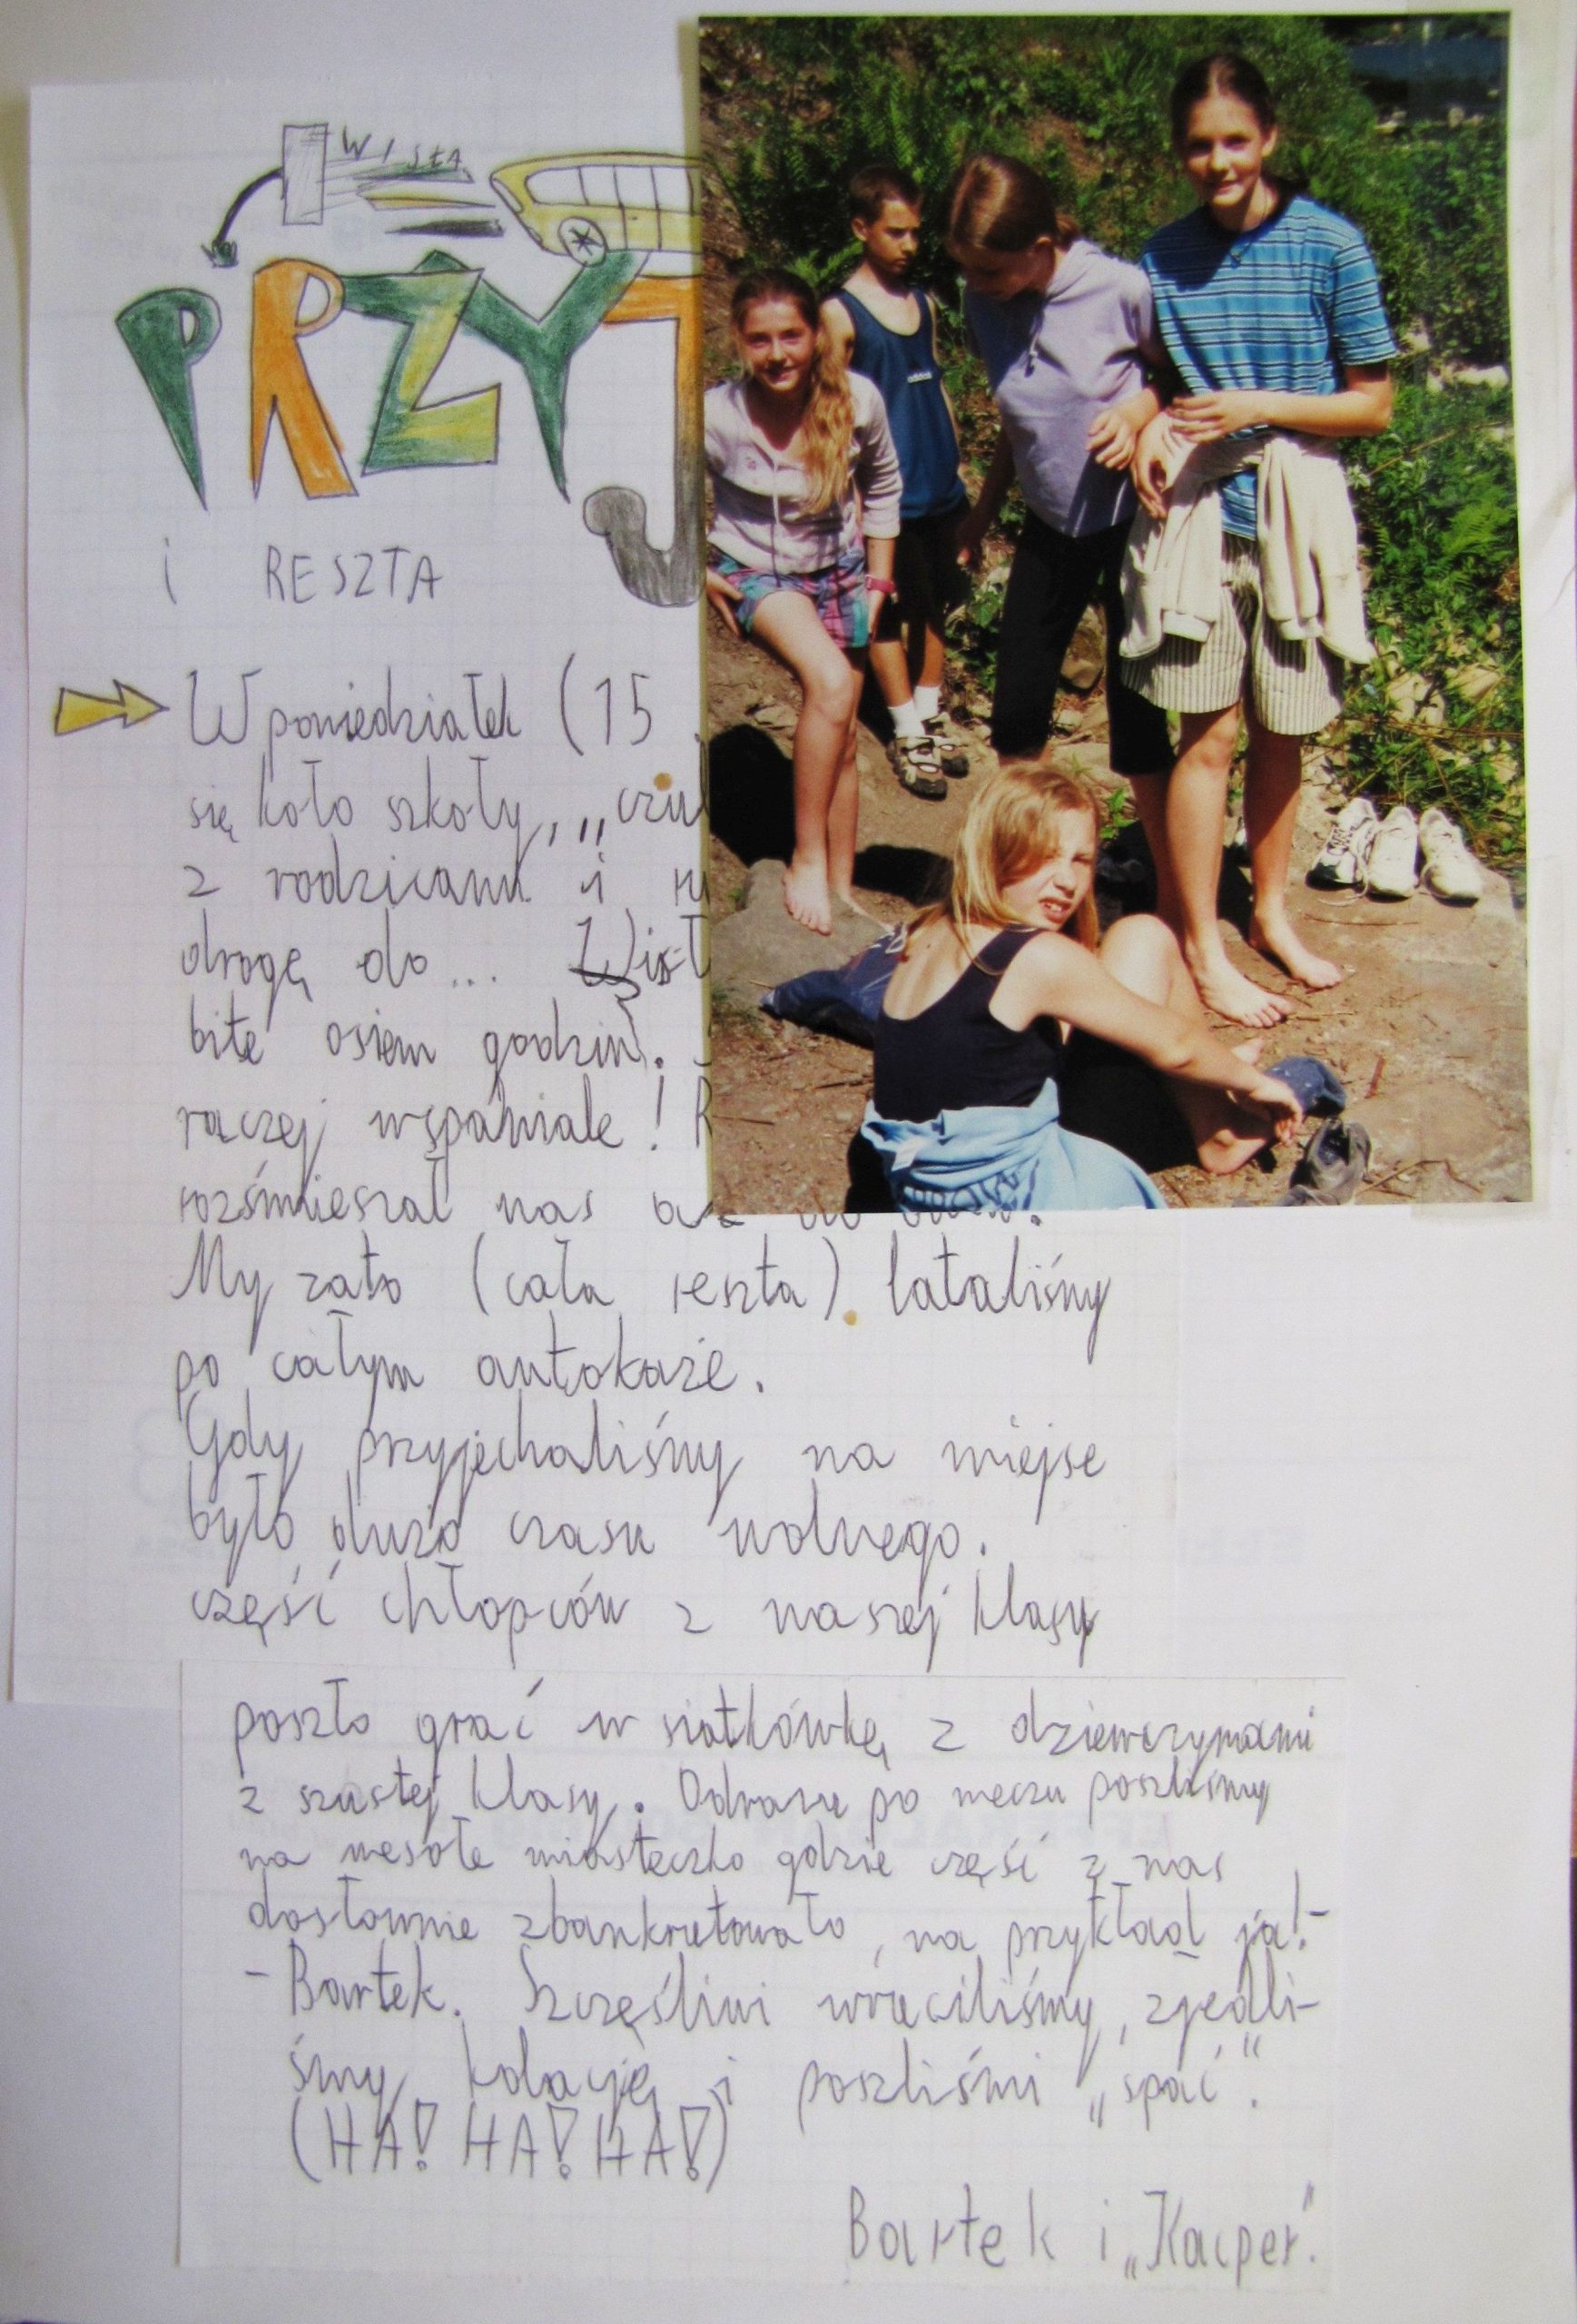 WISŁA
PRZYJ
i RESZTA
W poniedziałek (15
się koło szkoły, „czu
z rodzicami i ru
drogę do... Wisł
bite osiem godzin.
raczej wspaniale! R
rozśmieszał nas aż do
My zato (cała reszta) lataliśmy
po całym autokaże.
Gdy przyjechaliśmy na miejsc
było dużo czasu wolnego.
część chłopców z naszej klasy
poszło grać w siatkówkę z dziewczynami
z szustej klasy. Odrazu po meczu poszliśmy
na wesołe miasteczko gdzie część z nas
dosłownie zbankrutowało, na przykład ja!-
- Bartek. Szczęśliwi wruciliśmy, zjedli-
śmy kolację i poszliśmi „spać".
(HA! HA! HA!)
Bartek i „Kacper".